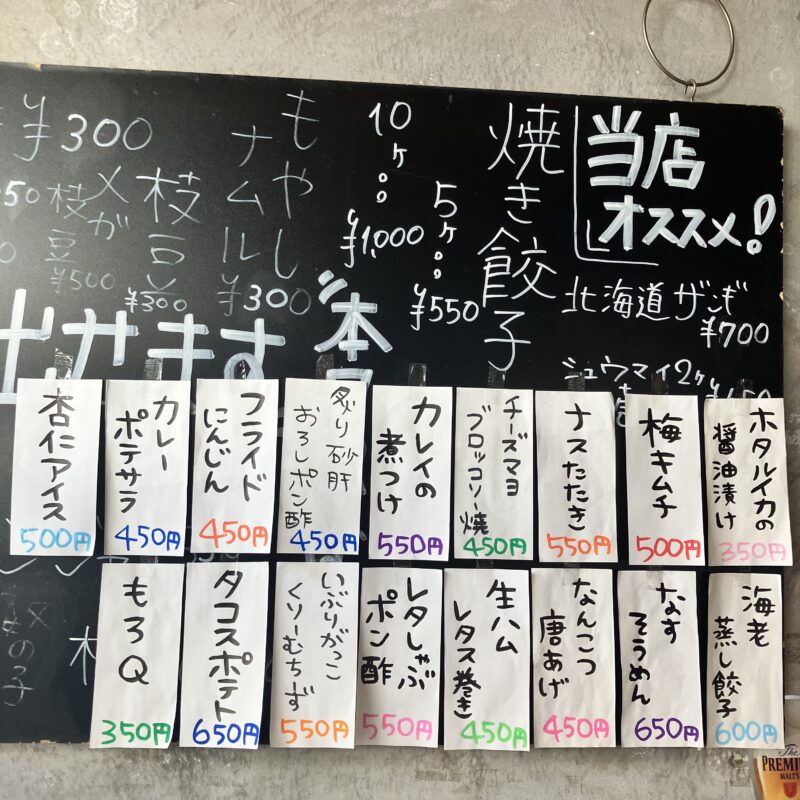 当店
オススメ！
焼き餃子
5ヶ。。¥550
10ヶ。。¥1,000
北海道ザンギ
¥700
シュウマイ2ヶ
もやし
ナムル
¥300
枝豆
¥300
メガ
枝豆
¥500
¥300
本
ます
ホタルイカの
醤油漬け
350円
梅キムチ
500円
ナスたたき
550円
チーズマヨ
ブロッコリー焼
450円
カレイの
煮つけ
550円
炙り砂肝
おろしポン酢
450円
フライド
にんじん
450円
カレー
ポテサラ
450円
杏仁アイス
500円
海老
蒸し餃子
600円
なす
そうめん
650円
なんこつ
唐あげ
450円
生ハム
レタス巻き
450円
レタしゃぶ
ポン酢
550円
いぶりがっこ
くりーむちず
550円
タコスポテト
650円
もろQ
350円
The
PREMIUM
MALT'S